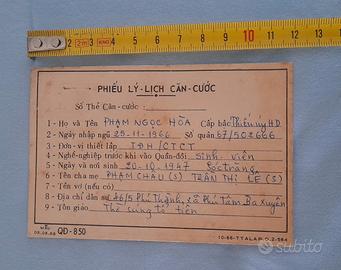 2 1 2 3 4 5 6 7 8 9 10 11 12 13
PHIẾU LÝ-LỊCH CĂN-CƯỚC
Số Thẻ Căn-cước :
1 - Họ và Tên PHẠM NGỌC HÒA Cấp bậc Thiếu úy HD
2 - Ngày nhập ngũ 25-11-1966 Số quân 67/502666
3 - Đơn-vị thiết lập TĐH/CTCT
4 - Nghề-nghiệp trước khi vào Quân-đội Sinh viên
5 - Ngày và nơi sinh 20-10-1947 Sóctrăng
6 - Tên cha mẹ PHẠM CHÂU (S) TRẦN THỊ LÊ (S)
7 - Tên vợ (nếu có)
8 - Địa chỉ dân sự 46/5 Phú Thịnh, xã Phú Tâm Ba Xuyên
9 - Tôn giáo Thờ cúng tổ tiên
MẪU QĐ-850
Subito